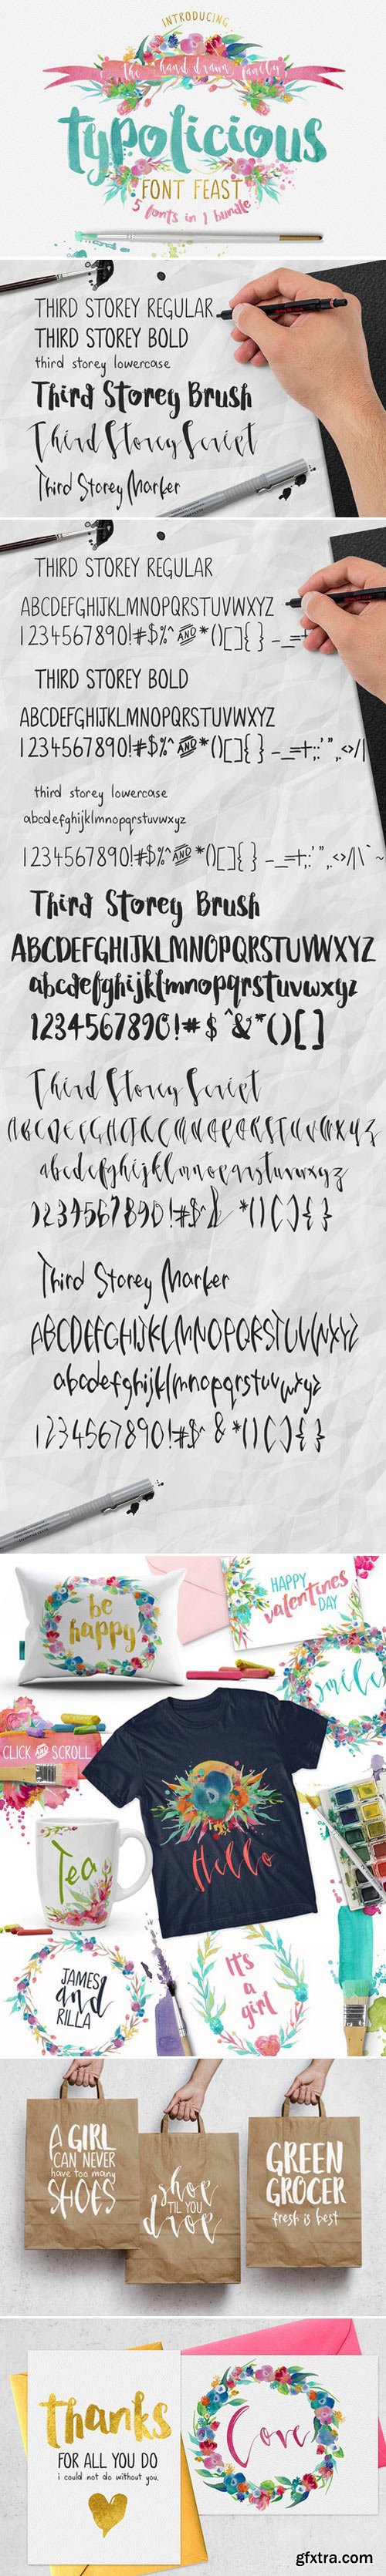 INTRODUCING
the hand drawn family
typolicious
FONT FEAST
5 fonts in 1 bundle
THIRD STOREY REGULAR
THIRD STOREY BOLD
third storey lowercase
Third Storey Brush
Third Storey Script
Third Storey Marker
THIRD STOREY REGULAR
ABCDEFGHIJKLMNOPQRSTUVWXYZ
1234567890!#$%^AND*()[]{} -_=+
THIRD STOREY BOLD
ABCDEFGHIJKLMNOPQRSTUVWXYZ
1234567890!#$%^AND*()[]{} -_=+;:'",.<>/|
third storey lowercase
abcdefghijklmnopqrstuvwxyz
1234567890!#$%^AND*()[]{} -_=+;:'",.<>/|\`~
Third Storey Brush
ABCDEFGHIJKLMNOPQRSTUVWXYZ
abcdefghijklmnopqrstuvwxyz
1234567890!#$^&*()[]
Third Storey Script
ABCDEFGHIJKLMNOPQRSTUVWXYZ
abcdefghijklmnopqrstuvwxyz
1234567890!#$^& *()[]{}
Third Storey Marker
ABCDEFGHIJKLMNOPQRSTUVWXYZ
abcdefghijklmnopqrstuvwxyz
1234567890!#$^ & *()[]{}
be
happy
HAPPY
valentines
DAY
smile
CLICK AND SCROLL
Hello
Tea
JAMES
and
RILLA
It's
a
girl
A GIRL
CAN NEVER
have too many
SHOES
shop
'TIL YOU
drop
GREEN
GROCER
fresh is best
thanks
FOR ALL YOU DO
i could not do without you.
Love
gfxtra.com